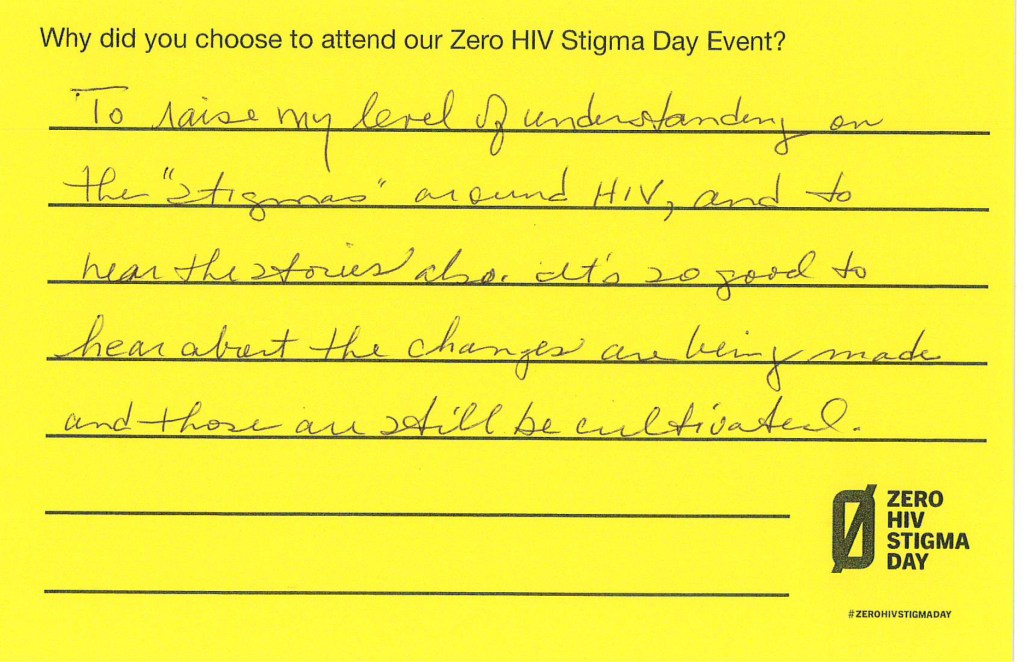 Why did you choose to attend our Zero HIV Stigma Day Event?
To raise my level of understanding on
the "stigmas" around HIV, and to
hear the stories also. It's so good to
hear about the changes are being made
and those are still be cultivated.
ZERO
HIV
STIGMA
DAY
#ZEROHIVSTIGMADAY